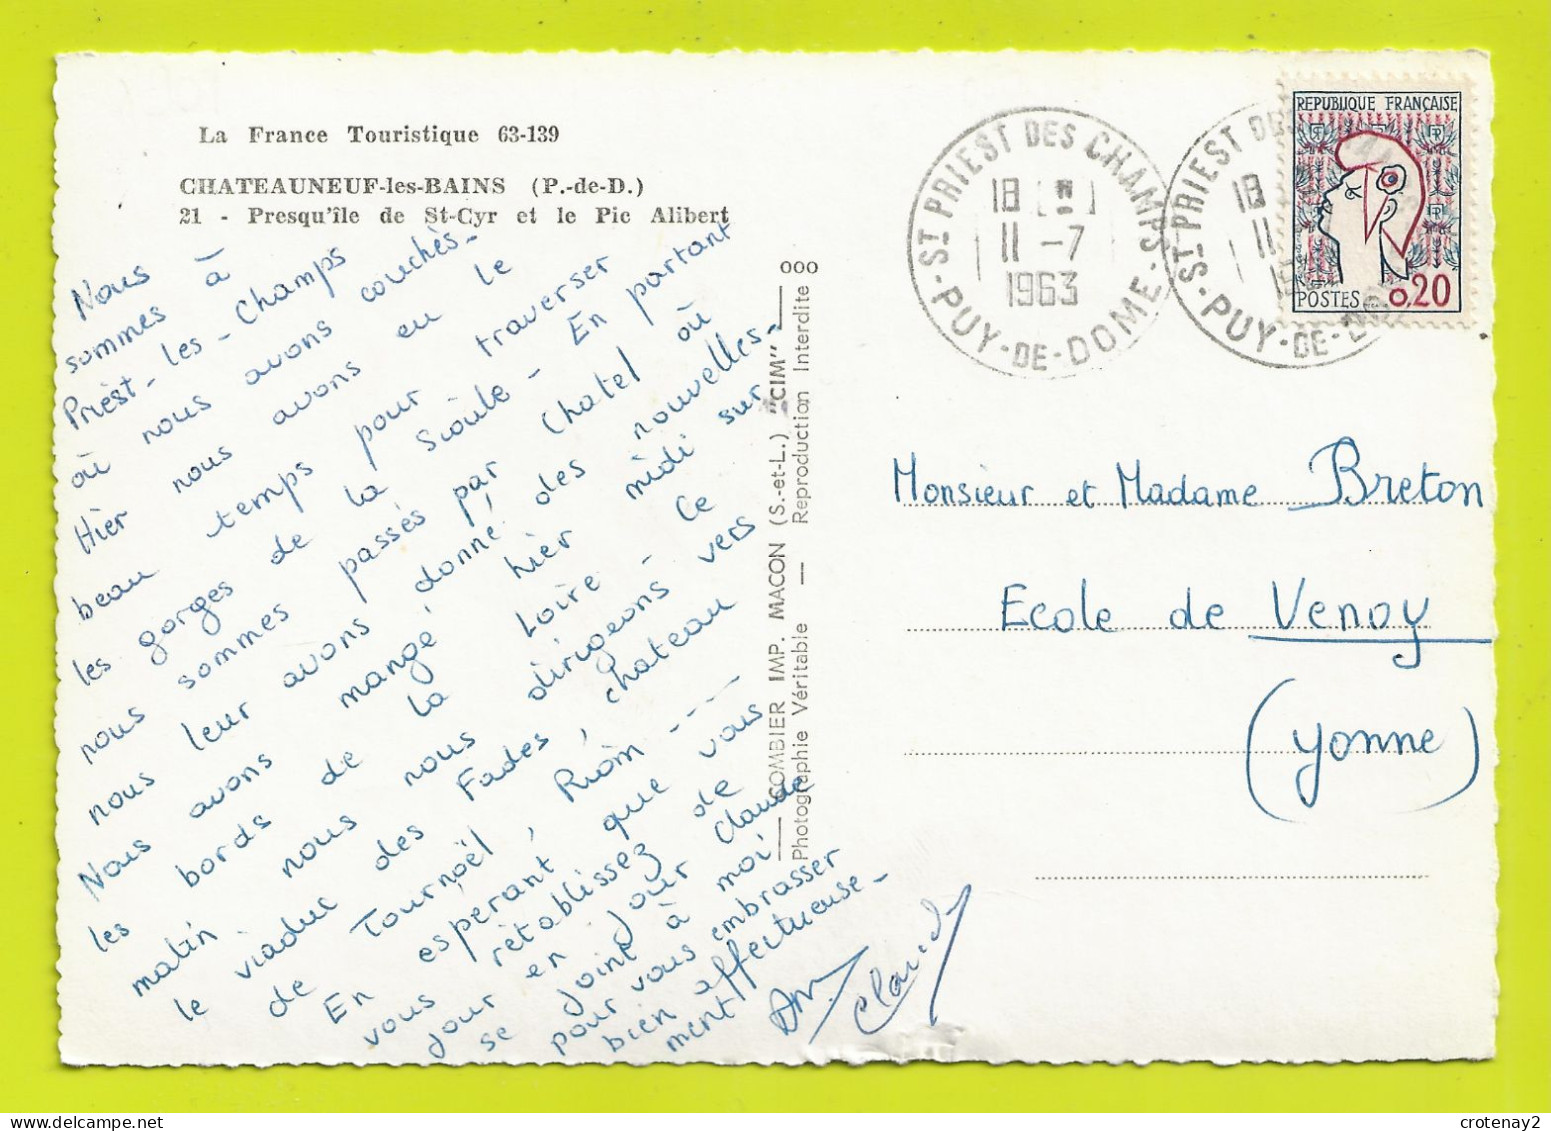 La France Touristique 63-139
CHATEAUNEUF-les-BAINS (P.-de-D.)
21 - Presqu'île de St-Cyr et le Pic Alibert
Nous
sommes à
Priest-les-Champs
où nous avons couchés-
Hier nous avons eu le
beau temps pour traverser
les gorges de la Sioule - En partant
nous sommes passés par Chatel où
nous leur avons donné des nouvelles-
Nous avons mangé hier midi sur
les bords de la Loire - Ce
matin nous nous dirigeons vers
le viaduc des Fades, chateau
de Tournoël, Riom ----
En esperant que vous
vous rétablissez de
jour en jour Claude
se joint à moi
pour vous embrasser
bien affectueuse-
ment
Claude
COMBIER IMP. MACON (S.-et-L.) "CIM"
Photographie Véritable — Reproduction Interdite
ooo
ST PRIEST DES CHAMPS
18 H
11 -7
1963
PUY-DE-DOME
ST PRIEST DE
18
11
PUY-DE-DO
REPUBLIQUE FRANÇAISE
RF
RF
POSTES
0,20
Monsieur et Madame Breton
Ecole de Venoy
(Yonne)
crotenay2